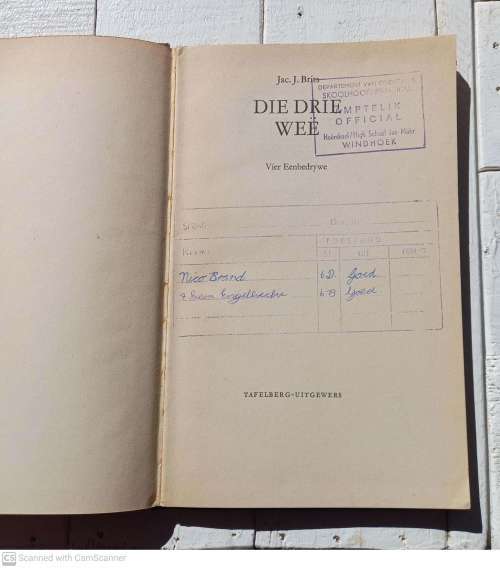 Jac. J. Brits
DIE DRIE
WEË
Vier Eenbedrywe
DEPARTEMENT VAN
SKOOLHOOF
AMPTELIK
OFFICIAL
Hoërskool/High School Jan Möhr
WINDHOEK
TOESTAND
Nico Brand 6D Goed
Engelbrecht 6B Goed
TAFELBERG-UITGEWERS
CS Scanned with CamScanner